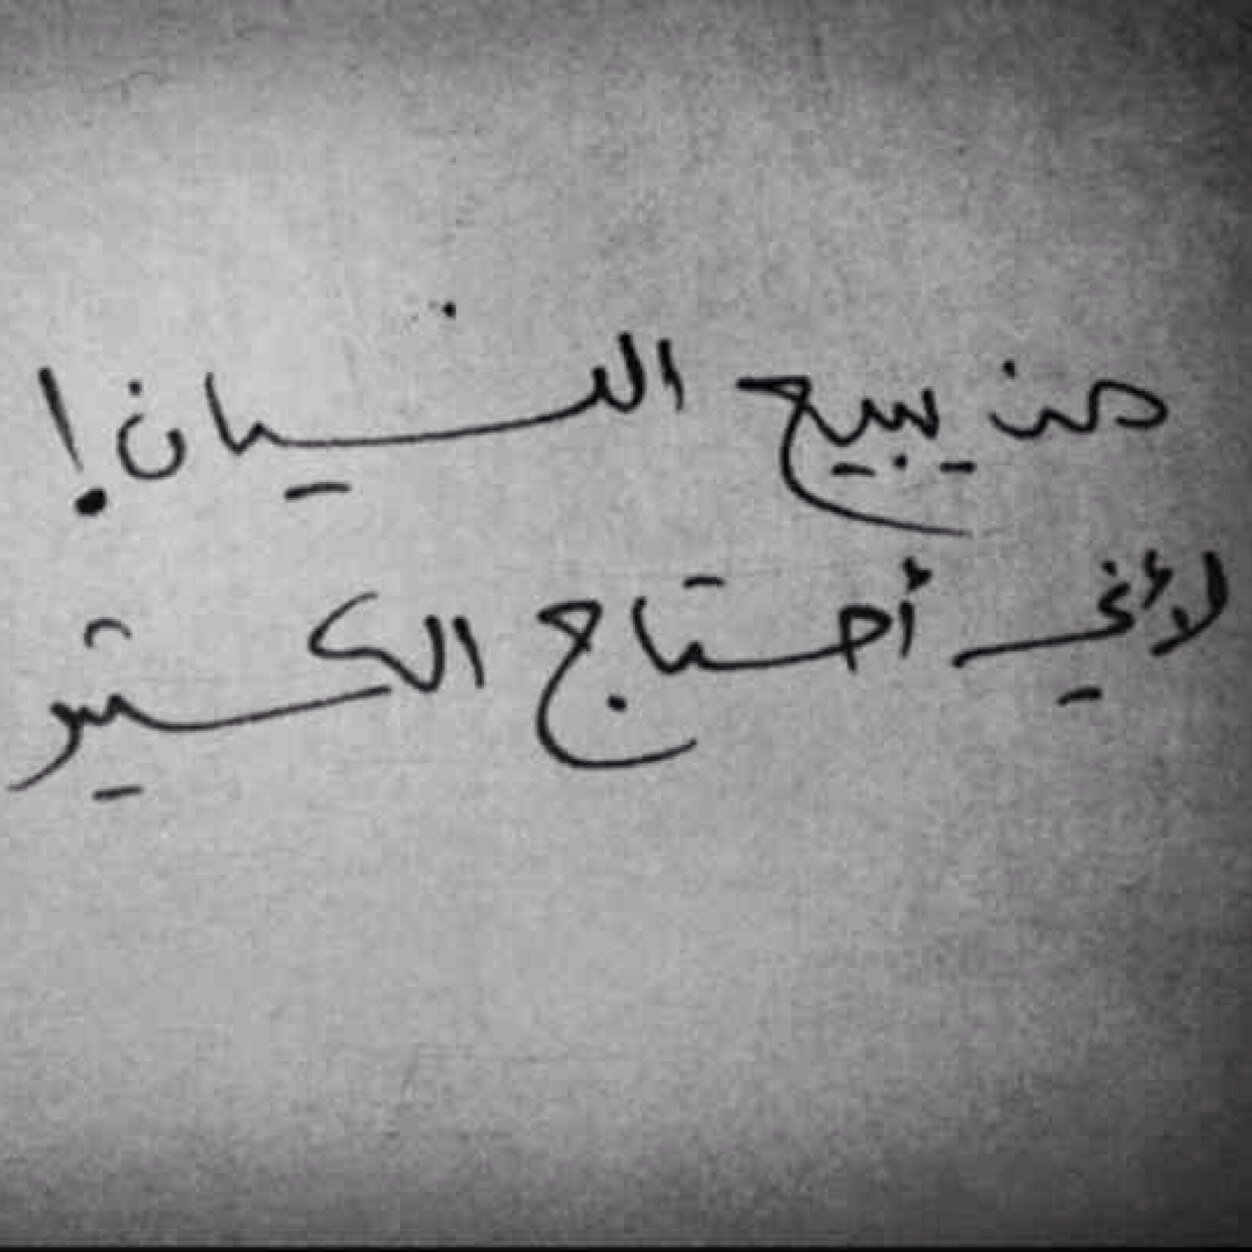 من يبيع النسيان!
لأني أحتاج الكثير